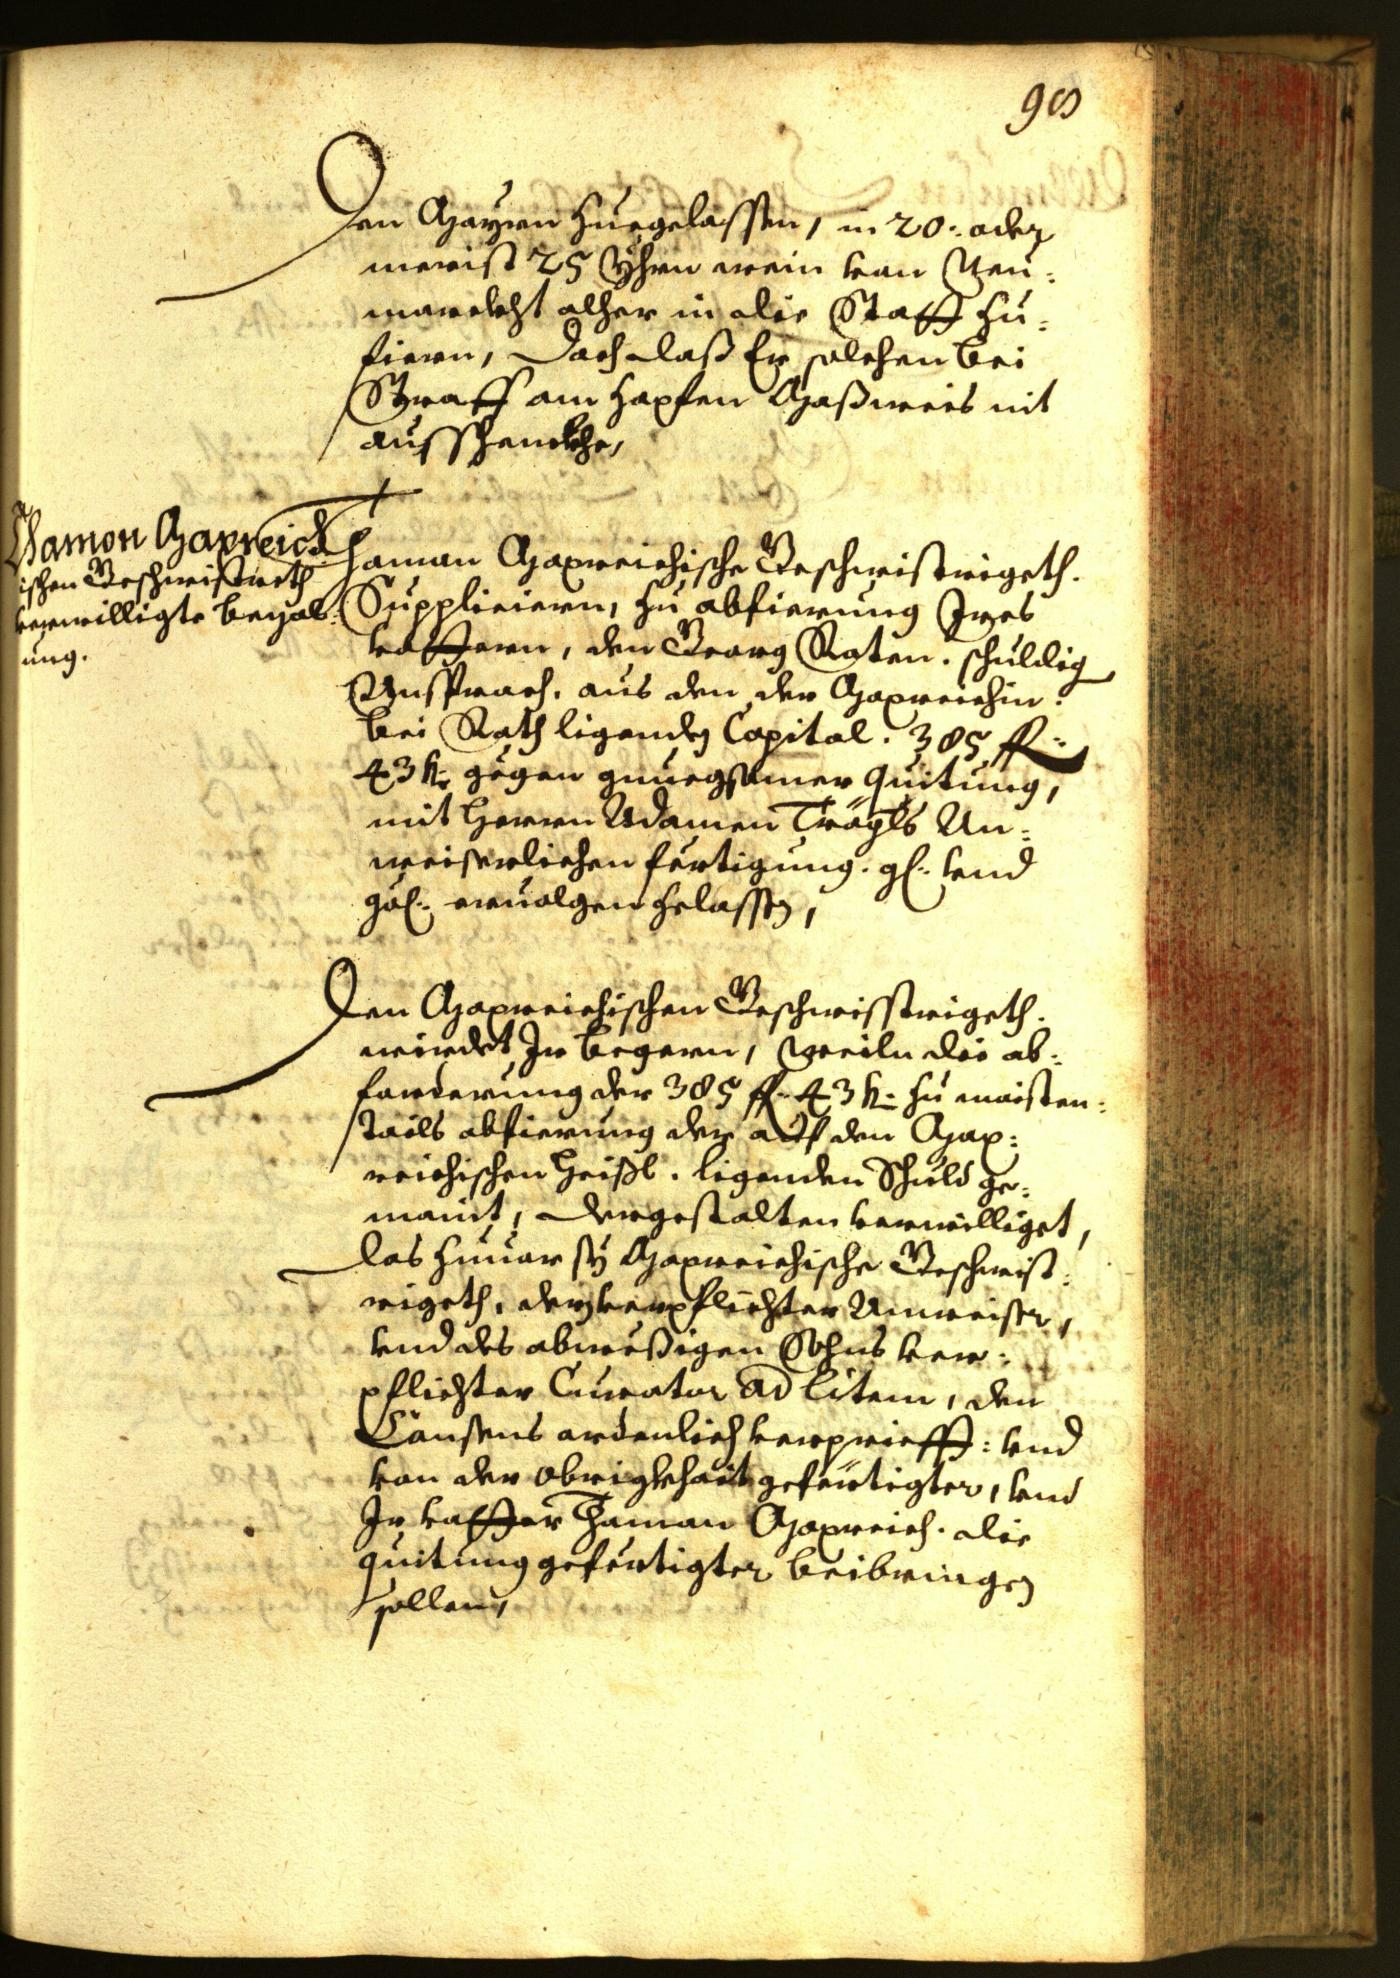 98
Den Mayrn zuegelassen, in 20: oder
meist 25 Yhrn wein von Neu:
marckht alher in die Statt zu:
fiern, doch daß Er solchen bei
Straff am Zapfen Maßweis nit
ausschenckhe,
Thaman Gapreich
ischen Geschwistreth
verwilligte bezal:
ung.
Thaman Gapreichische Geschwistrigeth.
Supplicieren, zu abfierung Ires
vattern, den Georg Raten. schuldig
Ansprach. aus den der Gapreichin:
bei Rath ligenden Capital. 385 fl:
43 kr: gegen gnuegsamer quitung,
mit Herrn Adamen Trögls An:
weiserlichen fertigung. gl. vnd
gol. ervolgen zelassen,
Den Gapreichischen Geschwisstrigeth.
wirdet Ir begern, weiln die ab:
forderung der 385 fl. 43 kr: zu maisten:
tails abfierung der auf den Gap:
reichischen Heißl. ligenden Schuld ge:
maint, dergestalten verwilliget,
das zuuor sÿ Gapreichische Geschwist:
rigeth, der verpflichter Anweiser,
vnd des abweßigen Sohns ver:
pflichter Curator ad litem, den
Consens ordenlich verprieff: vnd
von der Obrigkhait gefertigter, vnd
Ir vatter Thaman Gapreich. die
quitung gefertigter beibringen
sollen,